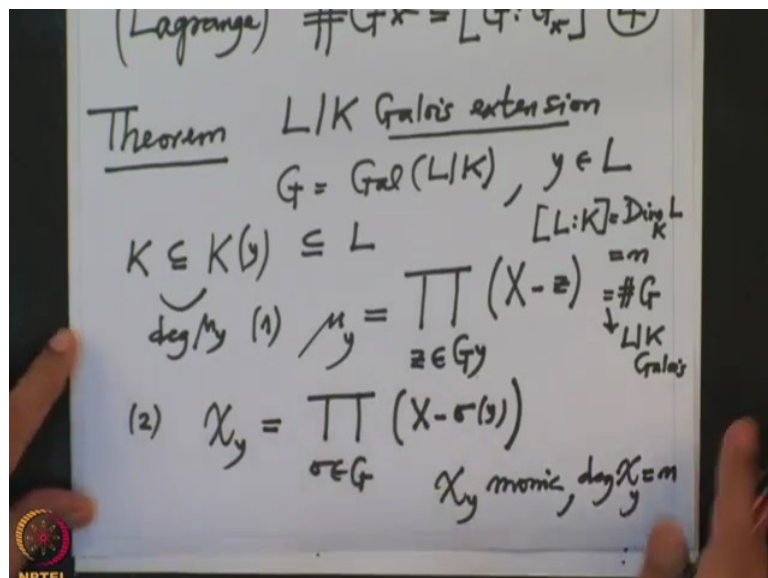 (Lagrange) #Gx = [G : Gx] ④
Theorem L|K Galois extension
G = Gal(L|K), y ∈ L
K ⊆ K(y) ⊆ L [L:K] = Dim_K L
= n
deg μ_y (1) μ_y = ∏_{z∈Gy} (X - z) = #G
↓ L|K
Galois
(2) χ_y = ∏_{σ∈G} (X - σ(y))
χ_y monic, deg χ_y = n
NPTEL